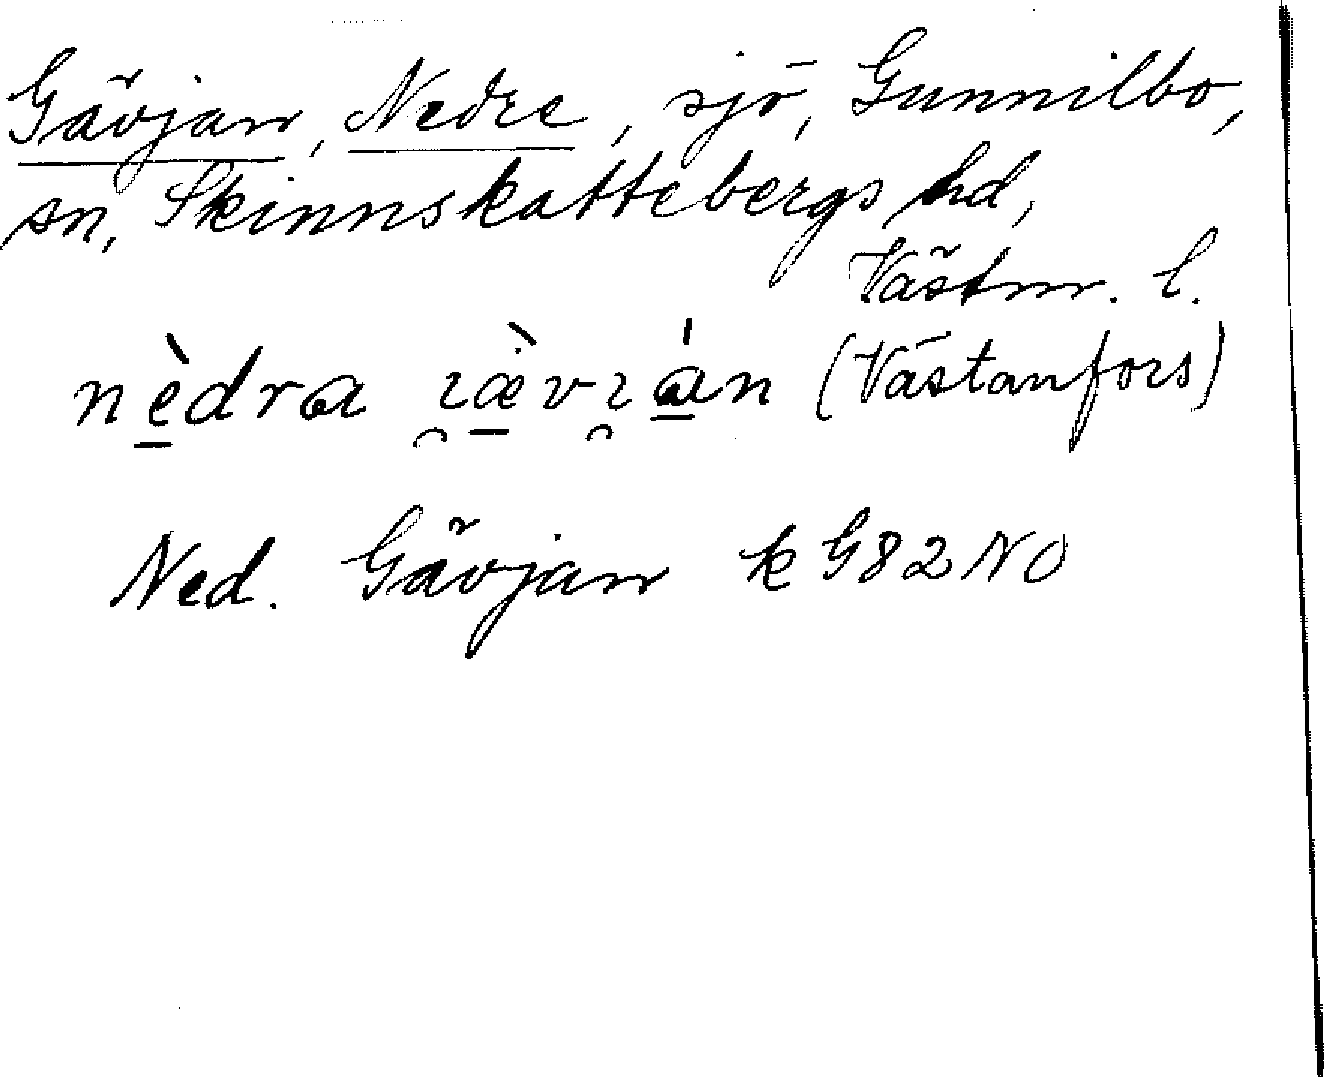 Gävjan, Nedre, sjö, Gunnilbo,
sn, Skinnskattebergs hd,
Västm. l.
nèdra ɪ̯æ̀vɪ̯án (Västanfors)
Ned. Gävjan k G82NO